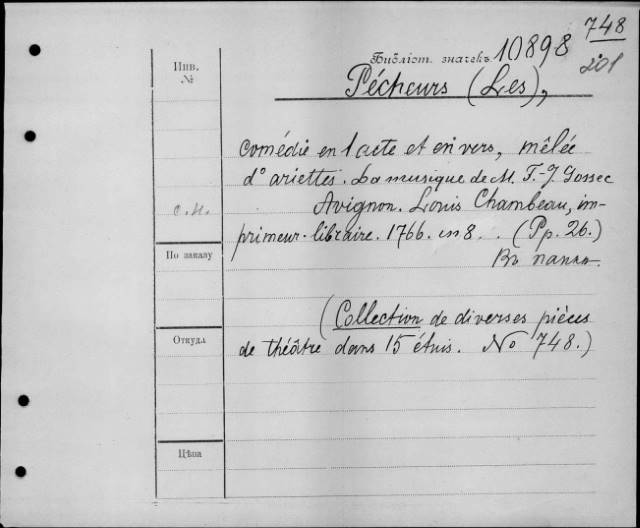 748
201
Библіот. значекъ 10898
Pécheurs (Les),
Инв.
№
comédie en 1 acte et en vers, mêlée
d'ariettes. La musique de M. F.-J. Gossec
Avignon. Louis Chambeau, im-
primeur-libraire. 1766. in 8. . (Pp. 26.)
Въ папкѣ.
По заказу
(Collection de diverses pièces
de théâtre dans 15 étuis. No 748.)
Откуда
Цѣна